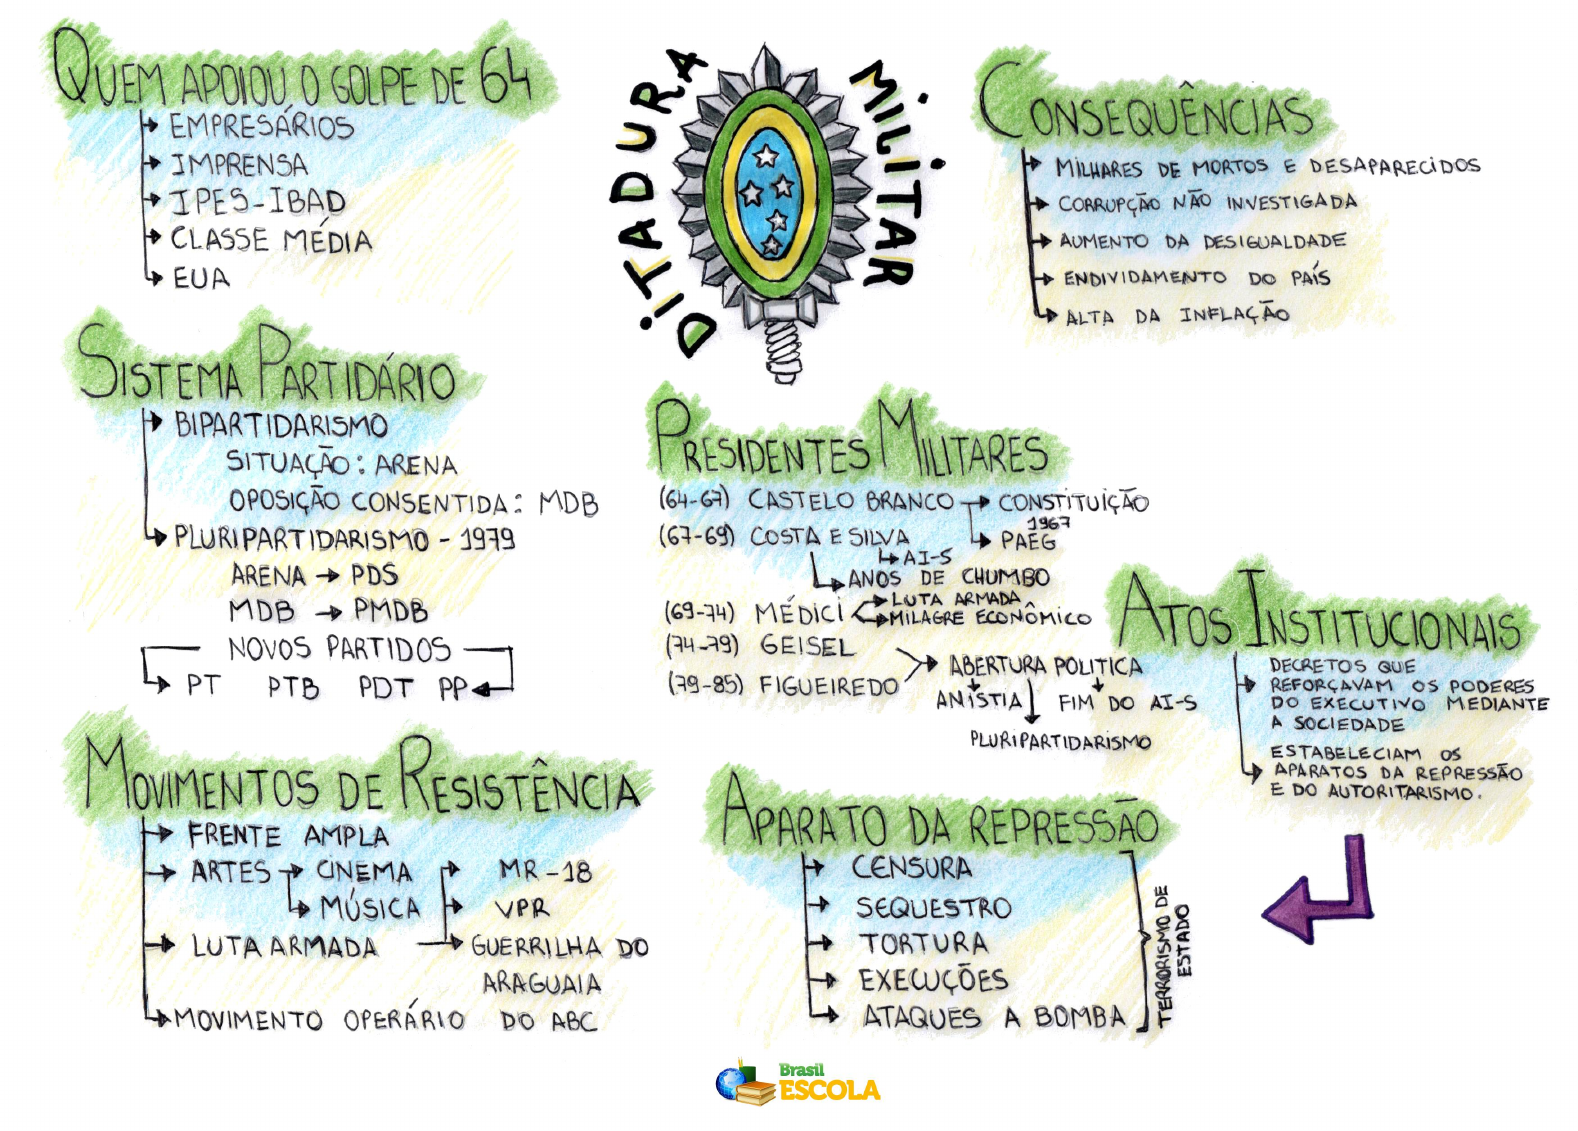 QUEM APOIOU O GOLPE DE 64
EMPRESÁRIOS
IMPRENSA
IPES-IBAD
CLASSE MÉDIA
EUA
DITADURA MILITAR
CONSEQUÊNCIAS
MILHARES DE MORTOS E DESAPARECIDOS
CORRUPÇÃO NÃO INVESTIGADA
AUMENTO DA DESIGUALDADE
ENDIVIDAMENTO DO PAÍS
ALTA DA INFLAÇÃO
SISTEMA PARTIDÁRIO
BIPARTIDARISMO
SITUAÇÃO: ARENA
OPOSIÇÃO CONSENTIDA: MDB
PLURIPARTIDARISMO - 1979
ARENA → PDS
MDB → PMDB
NOVOS PARTIDOS
PT PTB PDT PP
PRESIDENTES MILITARES
(64-67) CASTELO BRANCO → CONSTITUIÇÃO
1967
(67-69) COSTA E SILVA → PAEG
AI-5
ANOS DE CHUMBO
LUTA ARMADA
(69-74) MÉDICI MILAGRE ECONÔMICO
(74-79) GEISEL
ABERTURA POLITICA
(79-85) FIGUEIREDO
ANISTIA FIM DO AI-5
PLURIPARTIDARISMO
ATOS INSTITUCIONAIS
DECRETOS QUE
REFORÇAVAM OS PODERES
DO EXECUTIVO MEDIANTE
A SOCIEDADE
ESTABELECIAM OS
APARATOS DA REPRESSÃO
E DO AUTORITARISMO.
MOVIMENTOS DE RESISTÊNCIA
FRENTE AMPLA
ARTES → CINEMA
MÚSICA
LUTA ARMADA
MR-18
VPR
GUERRILHA DO
ARAGUAIA
MOVIMENTO OPERÁRIO DO ABC
APARATO DA REPRESSÃO
CENSURA
SEQUESTRO
TORTURA
EXECUÇÕES
ATAQUES A BOMBA
TERRORISMO DE
ESTADO
Brasil
ESCOLA